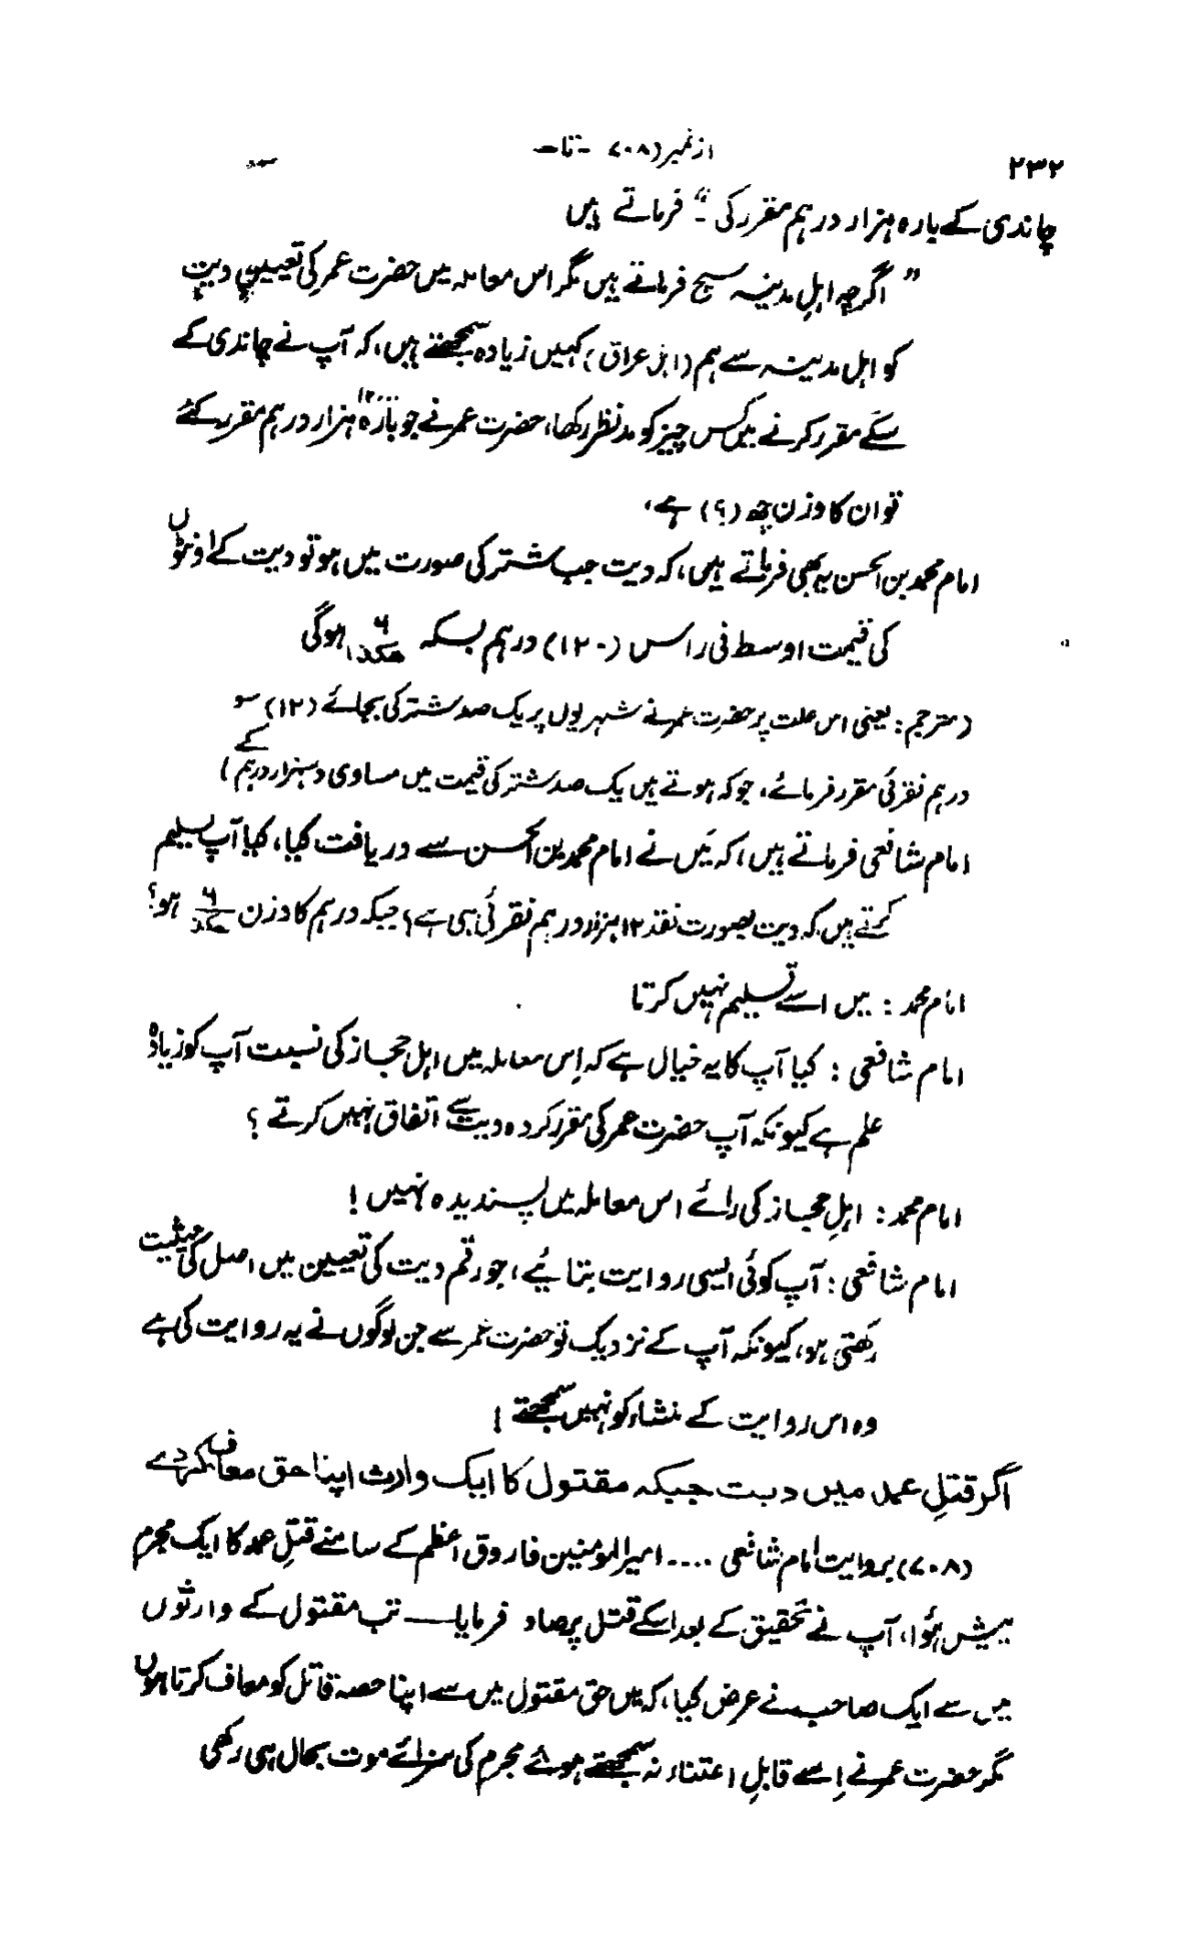 ۲۳۲
از نمبر (۷۰۸ - تا -
چاندی کے بارہ ہزار درہم مقرر کی ۔" فرماتے ہیں
" اگرچہ اہلِ مدینہ سچ فرماتے ہیں مگر اس معاملہ میں حضرت عمر کی تعیینِ دیت
کو اہل مدینہ سے ہم (اہل عراق) کہیں زیادہ سمجھتے ہیں، کہ آپ نے چاندی کے
سکے مقرر کرنے میں کس چیز کو مدنظر رکھا، حضرت عمر نے جو بارہ ۱۲۰۰۰ ہزار درہم مقرر کئے
تو ان کا وزن چھ (؟) ہے،
امام محمد بن الحسن یہ بھی فرماتے ہیں، کہ دیت جب شتر کی صورت میں ہو تو دیت کے اونٹوں
کی قیمت اوسط فی راس (۱۲۰) درہم بسکہ ۶ ہوگی
(مترجم: یعنی اس علت پر حضرت عمر نے شہریوں پر یک صد شتر کی بجائے (۱۲)
درہم نقرئی مقرر فرمائے، جو کہ ہوتے ہیں یک صد شتر کی قیمت میں مساوی دہزار درہم کے)
امام شافعی فرماتے ہیں، کہ مَیں نے امام محمد بن الحسن سے دریافت کیا، کیا آپ تسلیم
کرتے ہیں کہ دیت بصورت نقد ۱۲ ہزار درہم نقرئی ہی ہے؟ جبکہ درہم کا وزن ۶ ہو؟
امام محمد : میں اسے تسلیم نہیں کرتا
امام شافعی : کیا آپ کا یہ خیال ہے کہ اِس معاملہ میں اہل حجاز کی نسبت آپ کو زیادہ
علم ہے کیونکہ آپ حضرت عمر کی مقرر کردہ دیت سے اتفاق نہیں کرتے ؟
امام محمد : اہلِ حجاز کی رائے اس معاملہ میں پسندیدہ نہیں !
امام شافعی : آپ کوئی ایسی روایت بتائیے، جو رقم دیت کی تعیین میں اصل کی حیثیت
رکھتی ہو، کیونکہ آپ کے نزدیک تو حضرت عمر سے جن لوگوں نے یہ روایت کی ہے
وہ اس روایت کے منشاء کو نہیں سمجھتے !
اگر قتلِ عمد میں دیت جبکہ مقتول کا ایک وارث اپنا حق معاف کردے
(۷۰۸) بروایت امام شافعی .... امیر المومنین فاروق اعظم کے سامنے قتلِ عمد کا ایک مجرم
پیش ہُوا، آپ نے تحقیق کے بعد اسکے قتل پر صاد فرمایا — تب مقتول کے وارثوں
میں سے ایک صاحب نے عرض کیا، کہ میں حق مقتول میں سے اپنا حصہ قاتل کو معاف کرتا ہوں
مگر حضرت عمر نے اِسے قابلِ اعتناء نہ سمجھتے ہوئے مجرم کی سزائے موت بحال ہی رکھی